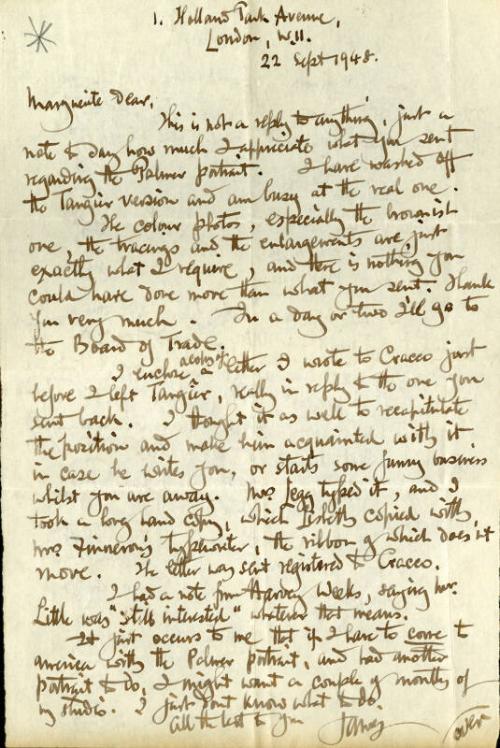 1. Holland Park Avenue,
London, W.11.
22 Sept 1948.
Marguerite dear,
This is not a reply to anything, just a
note to day how much I appreciate what you sent
regarding the Palmer portrait. I have washed off
the Tangier version and am busy at the real one.
The colour photos, especially the brownish
one, the tracings and the enlargements are just
exactly what I require, and there is nothing you
could have done more than what you sent. Thank
you very much. In a day or two I'll go to
the Board of Trade.
I enclose a copy of letter I wrote to Cracco just
before I left Tangier, really in reply to the one you
sent back. I thought it as well to recapitulate
the position and make him acquainted with it
in case he writes you, or starts some funny business
whilst you are away. Mrs. Jegg typed it, and I
took a long hand copy, which Lisbeth copied with
Mrs. Finneron's typewriter, the ribbon of which does'nt
move. The letter was sent registered to Cracco.
I had a note from Harvey Weeks, saying Mr.
Little was "still interested" whatever that means.
It just occurs to me that if I have to come to
america with the Palmer portrait, and had another
portrait to do, I might want a couple of months of
my studio. I just don't know what to do.
All the best to you James
over